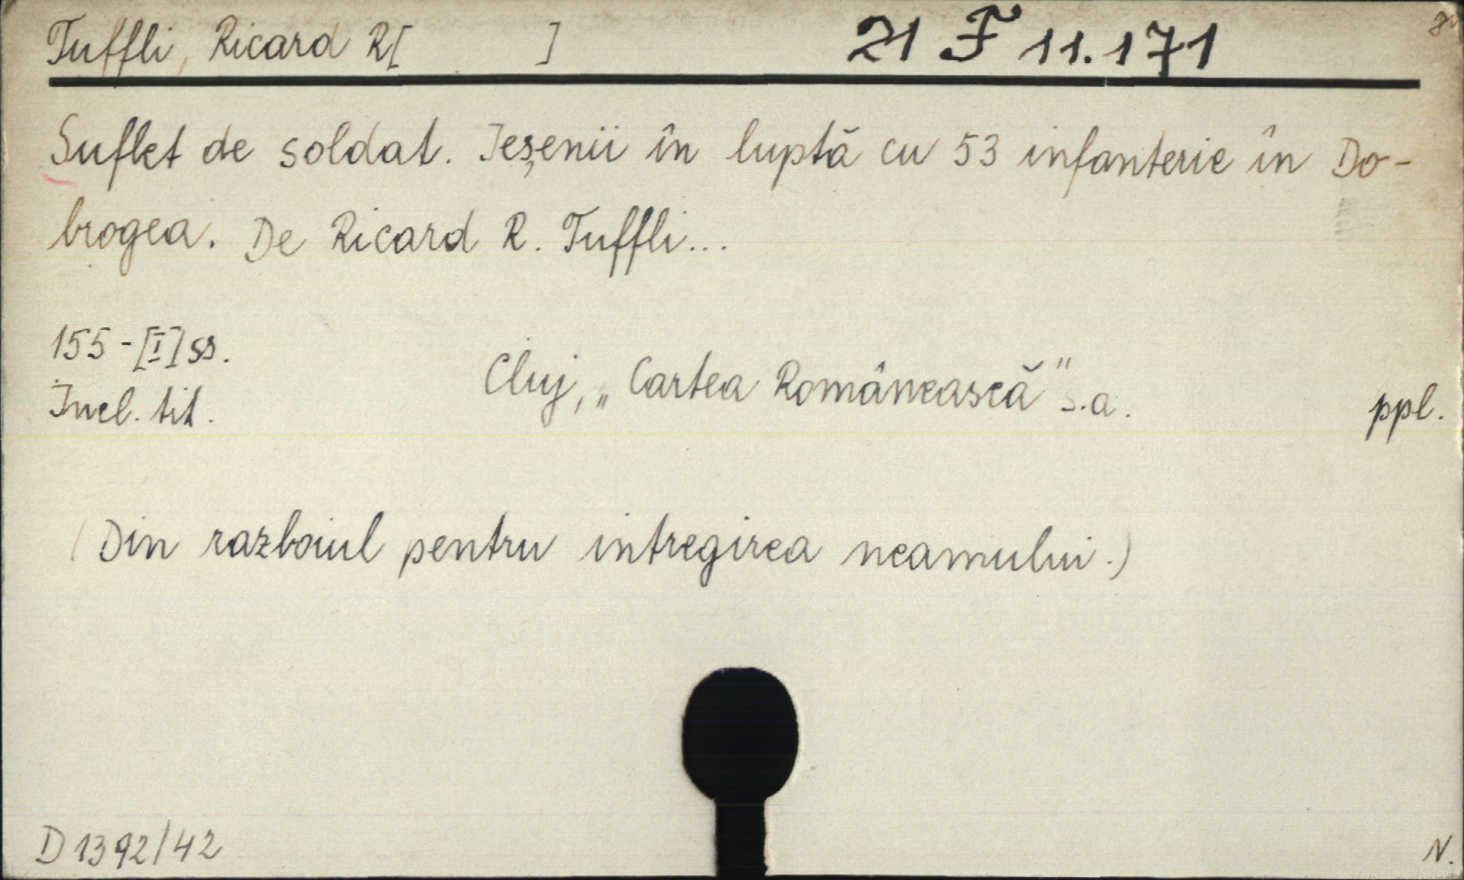 Tuffli, Ricard R[ ] 21 F 11.171
Suflet de soldat. Ieșenii în luptă cu 53 infanterie în Do-
brogea. De Ricard R. Tuffli...
155-[I] ss.
Cluj, „Cartea Românească" s.a.
Incl. tit.
ppl.
(Din razboiul pentru intregirea neamului.)
D 1392/42
N.